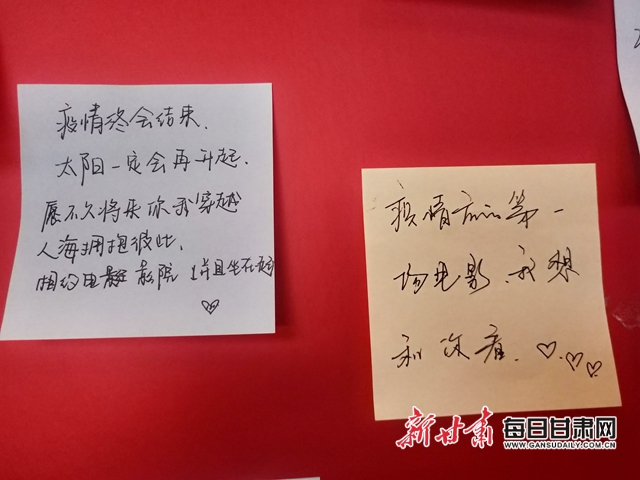 疫情终会结束.
太阳一定会再升起.
愿不久将来你我穿越
人海拥抱彼此.
相约电影院 并且坐在
疫情后的第一
场电影.我想
和你看.
新甘肃 每日甘肃网
WWW.GANSUDAILY.COM.CN